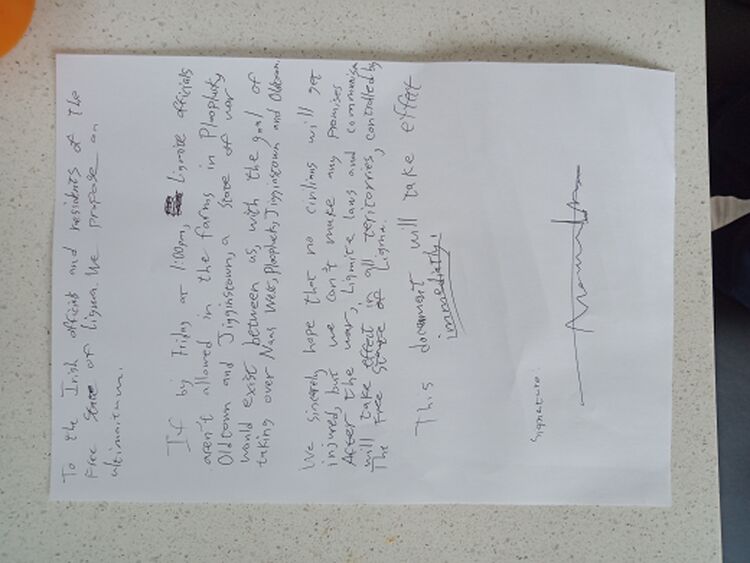 To the Irish officials and residents of the
Free State of Ligma. We propose an
ultimaitum.
If by Friday at 1:00pm, Ligmite officials
aren't allowed in the farms in Ploopluty
Oldtown and Jigginstown, a state of war
would exist between us, with the goal of
taking over Naas West, Ploopluty, Jigginstown and Oldtown.
We sincerely hope that no civilians will get
injured, but we can't make any promises
After the war, Ligmite laws and communism
will take effect in all teritorries, controlled by
The Free State of Ligma.
This document will take effect
immediatly!
Signature: